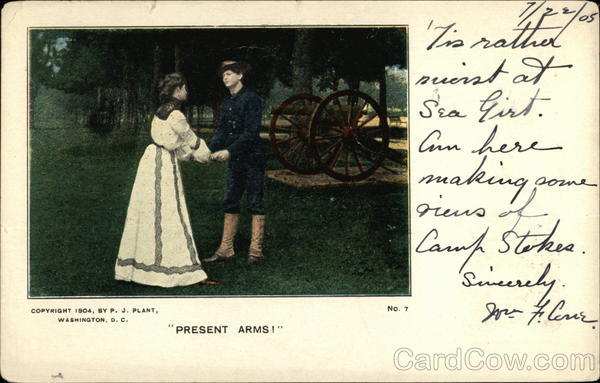 7/22/05
'Tis rather
moist at
Sea Girt.
Am here
making some
views of
Camp Stokes.
Sincerely.
Wm F. Cone.
COPYRIGHT 1904, BY P. J. PLANT,
WASHINGTON, D. C.
No. 7
"PRESENT ARMS!"
CardCow.com